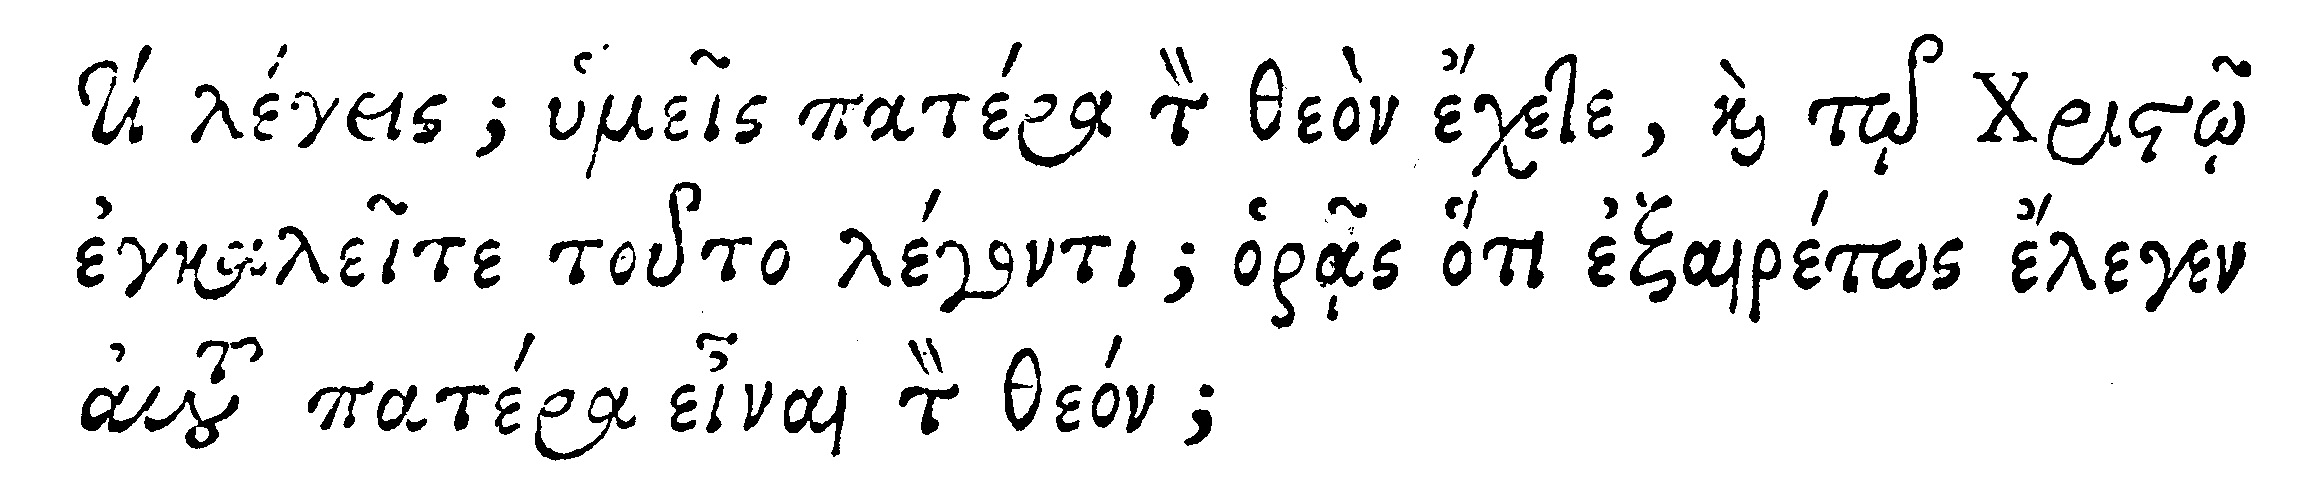 Τί λέγεις; ὑμεῖς πατέρα τὸν θεὸν ἔχετε, καὶ τῷ Χριστῷ
ἐγκαλεῖτε τοῦτο λέγοντι; ὁρᾷς ὅτι ἐξαιρέτως ἔλεγεν
αὐτοῦ πατέρα εἶναι τὸν θεόν;